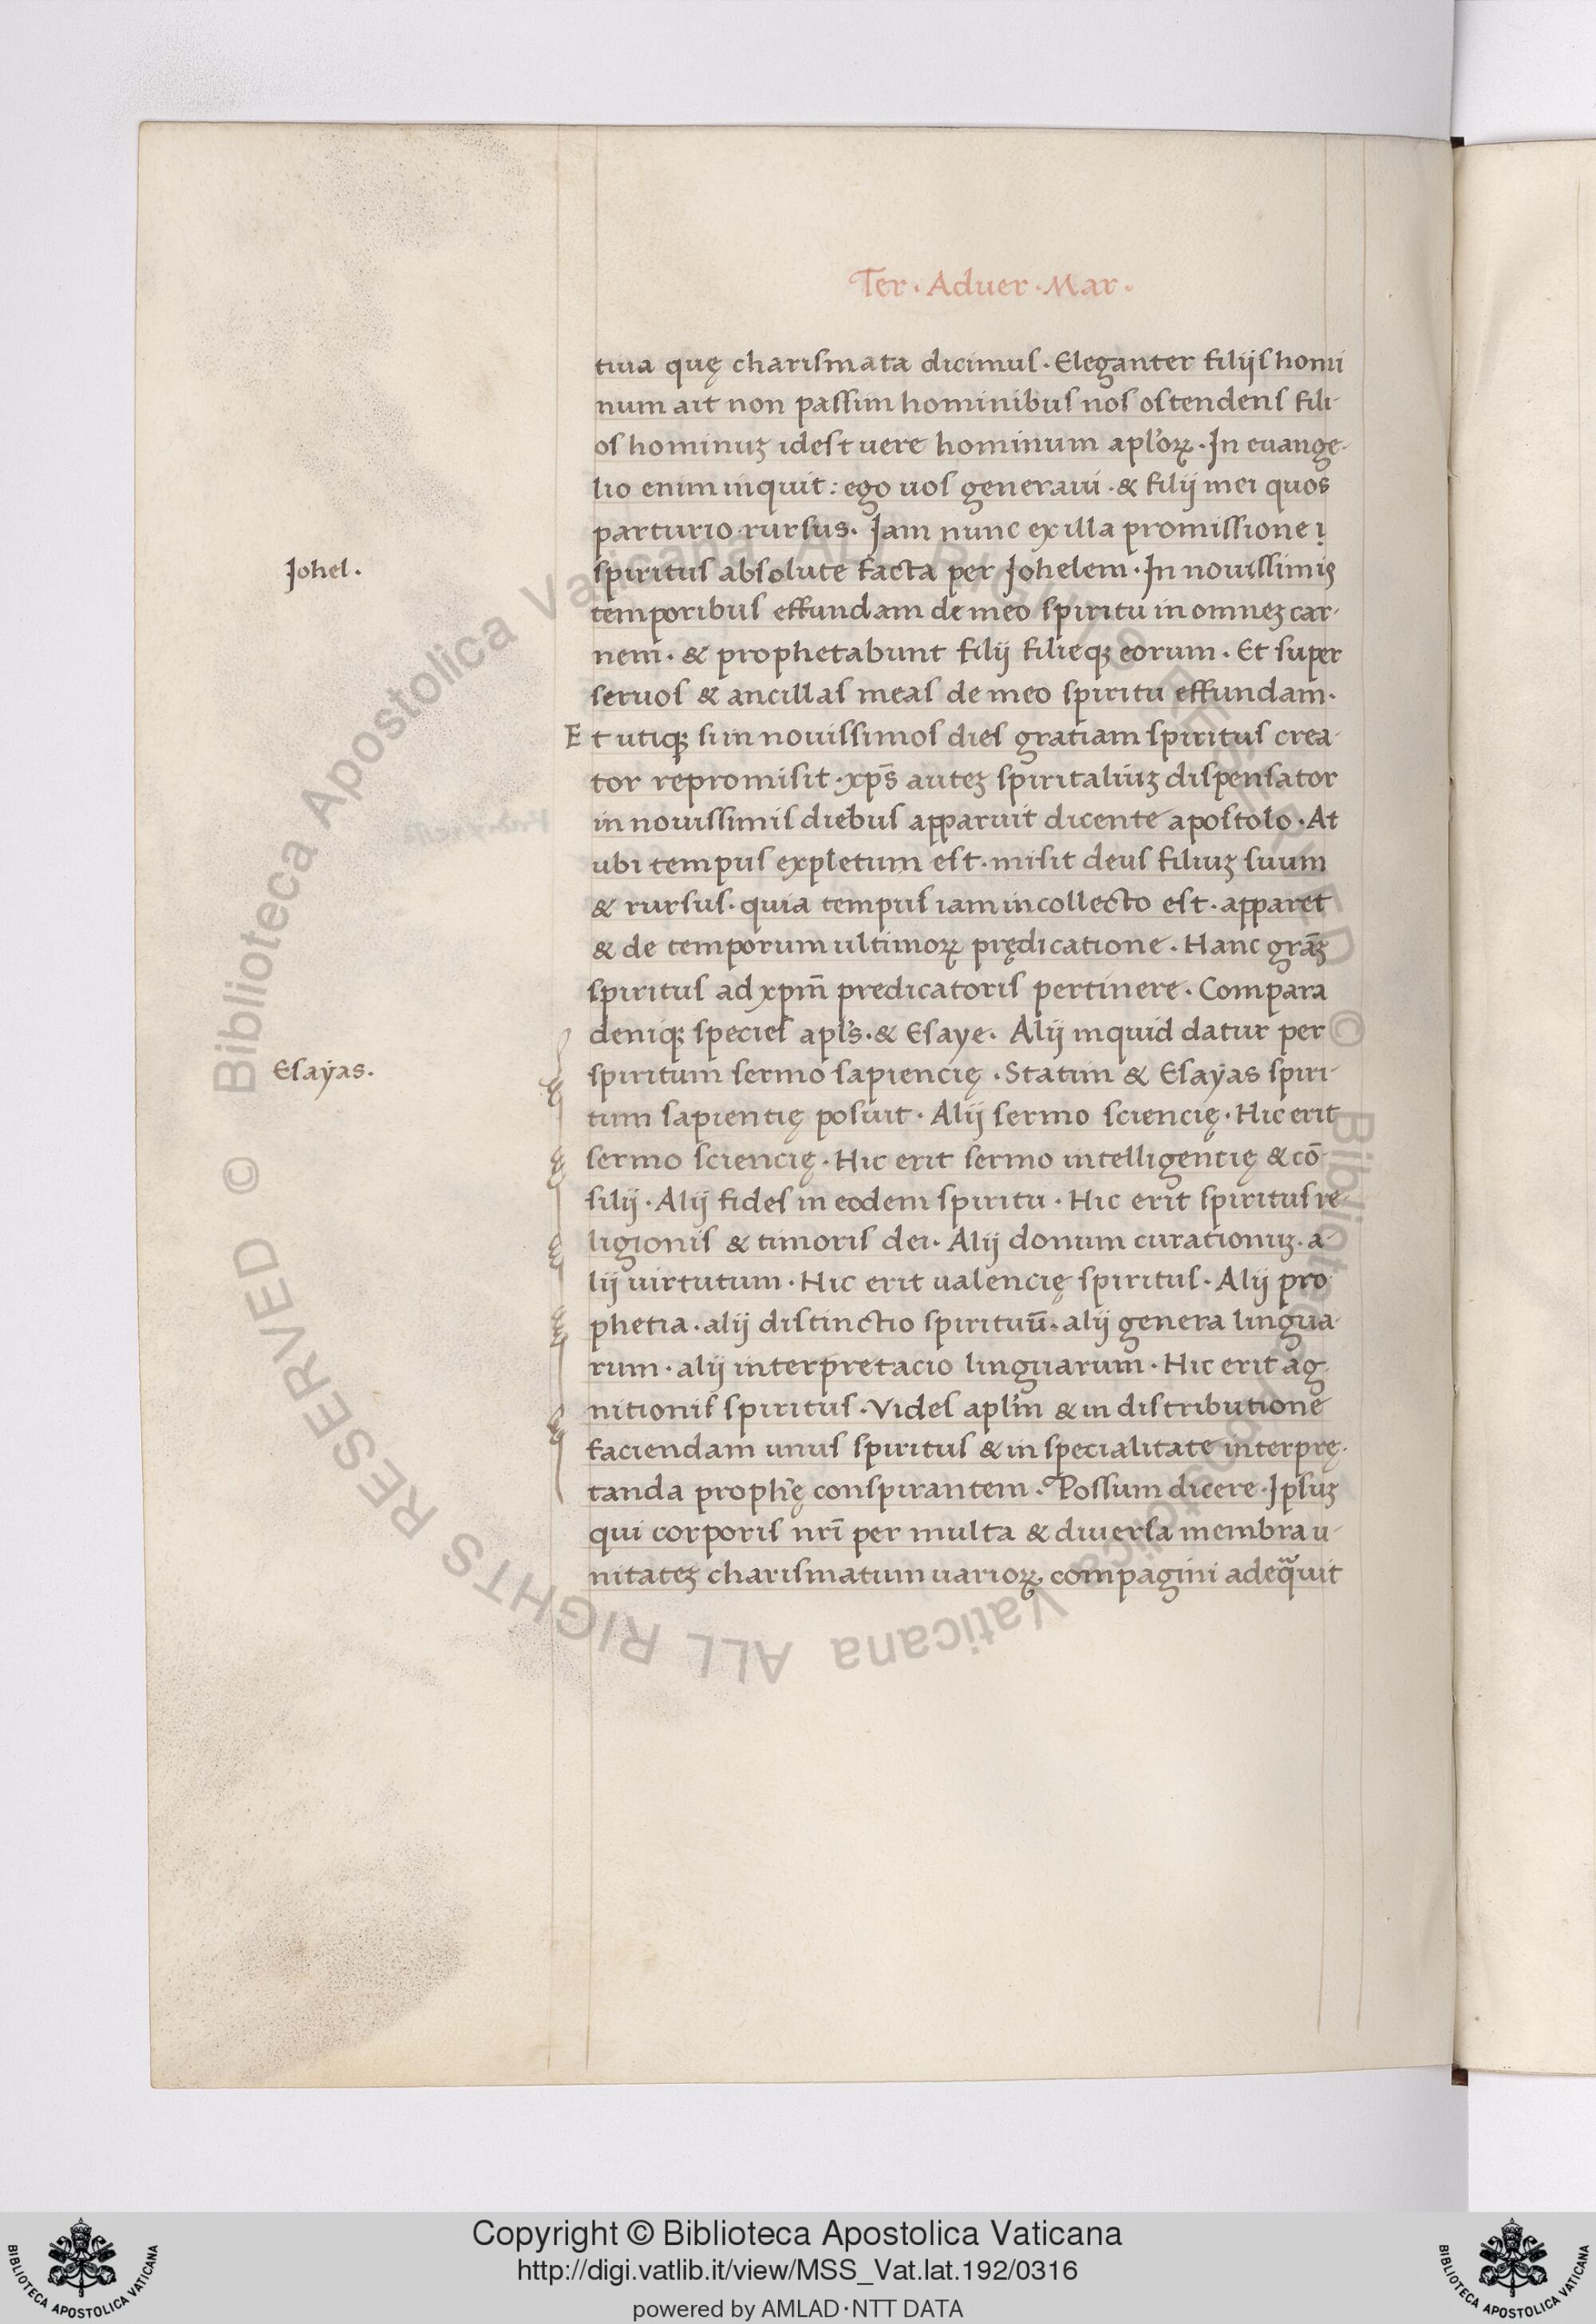 Ter · Aduer · Mar ·
tiua quę charismata dicimus · Eleganter filijs homi
num ait non passim hominibus nos ostendens fili-
os hominuꝫ idest uere hominum apl'oꝝ · In euange-
lio enim inquit : ego uos generaui · & filij mei quos
parturio rursus · Iam nunc ex illa promissione ı
Johel ·
spiritus absolute facta per Johelem · In nouissimis
temporibus effundam de meo spiritu in omneꝫ car-
nem · & prophetabunt filij filieqꝫ eorum · Et super
seruos & ancillas meas de meo spiritu effundam ·
Et utiqꝫ si in nouissimos dies gratiam spiritus crea-
tor repromisit · xp̄s auteꝫ spiritaliuꝫ dispensator
in nouissimis diebus apparuit dicente apostolo · At
ubi tempus expletum est · misit deus filiuꝫ suum
& rursus · quia tempus iam in collecto est · apparet
& de temporum ultimoꝝ prędicatione · Hanc grāꝫ
spiritus ad xpm̄ predicatoris pertinere · Compara
deniqꝫ species apl's · & Esaye · Alij inquid datur per
Esaÿas ·
spiritum sermo sapiencię · Statim & Esaÿas spiri-
tum sapientię posuit · Alij sermo sciencię · Hic erit
sermo sciencię · Hic erit sermo intelligentię & cō-
silij · Alij fides in eodem spiritu · Hic erit spiritus re-
ligionis & timoris dei · Alij donum curationuꝫ · a-
lij uirtutum · Hic erit ualencię spiritus · Alij pro
phetia · alij distinctio spirituū · alij genera lingua-
rum · alij interpretacio linguarum · Hic erit ag-
nitionis spiritus · Vides apl'm & in distributione
faciendam unus spiritus & in specialitate interprę-
tanda proph'ę conspirantem · Possum dicere · Ipsuꝫ
qui corporis nrī per multa & diuersa membra u-
nitateꝫ charismatum uarioꝝ compagini adequauit
Copyright © Biblioteca Apostolica Vaticana
http://digi.vatlib.it/view/MSS_Vat.lat.192/0316
powered by AMLAD·NTT DATA
BIBLIOTECA APOSTOLICA VATICANA
BIBLIOTECA APOSTOLICA VATICANA
© Biblioteca Apostolica Vaticana ALL RIGHTS RESERVED © Biblioteca Apostolica Vaticana ALL RIGHTS RESERVED